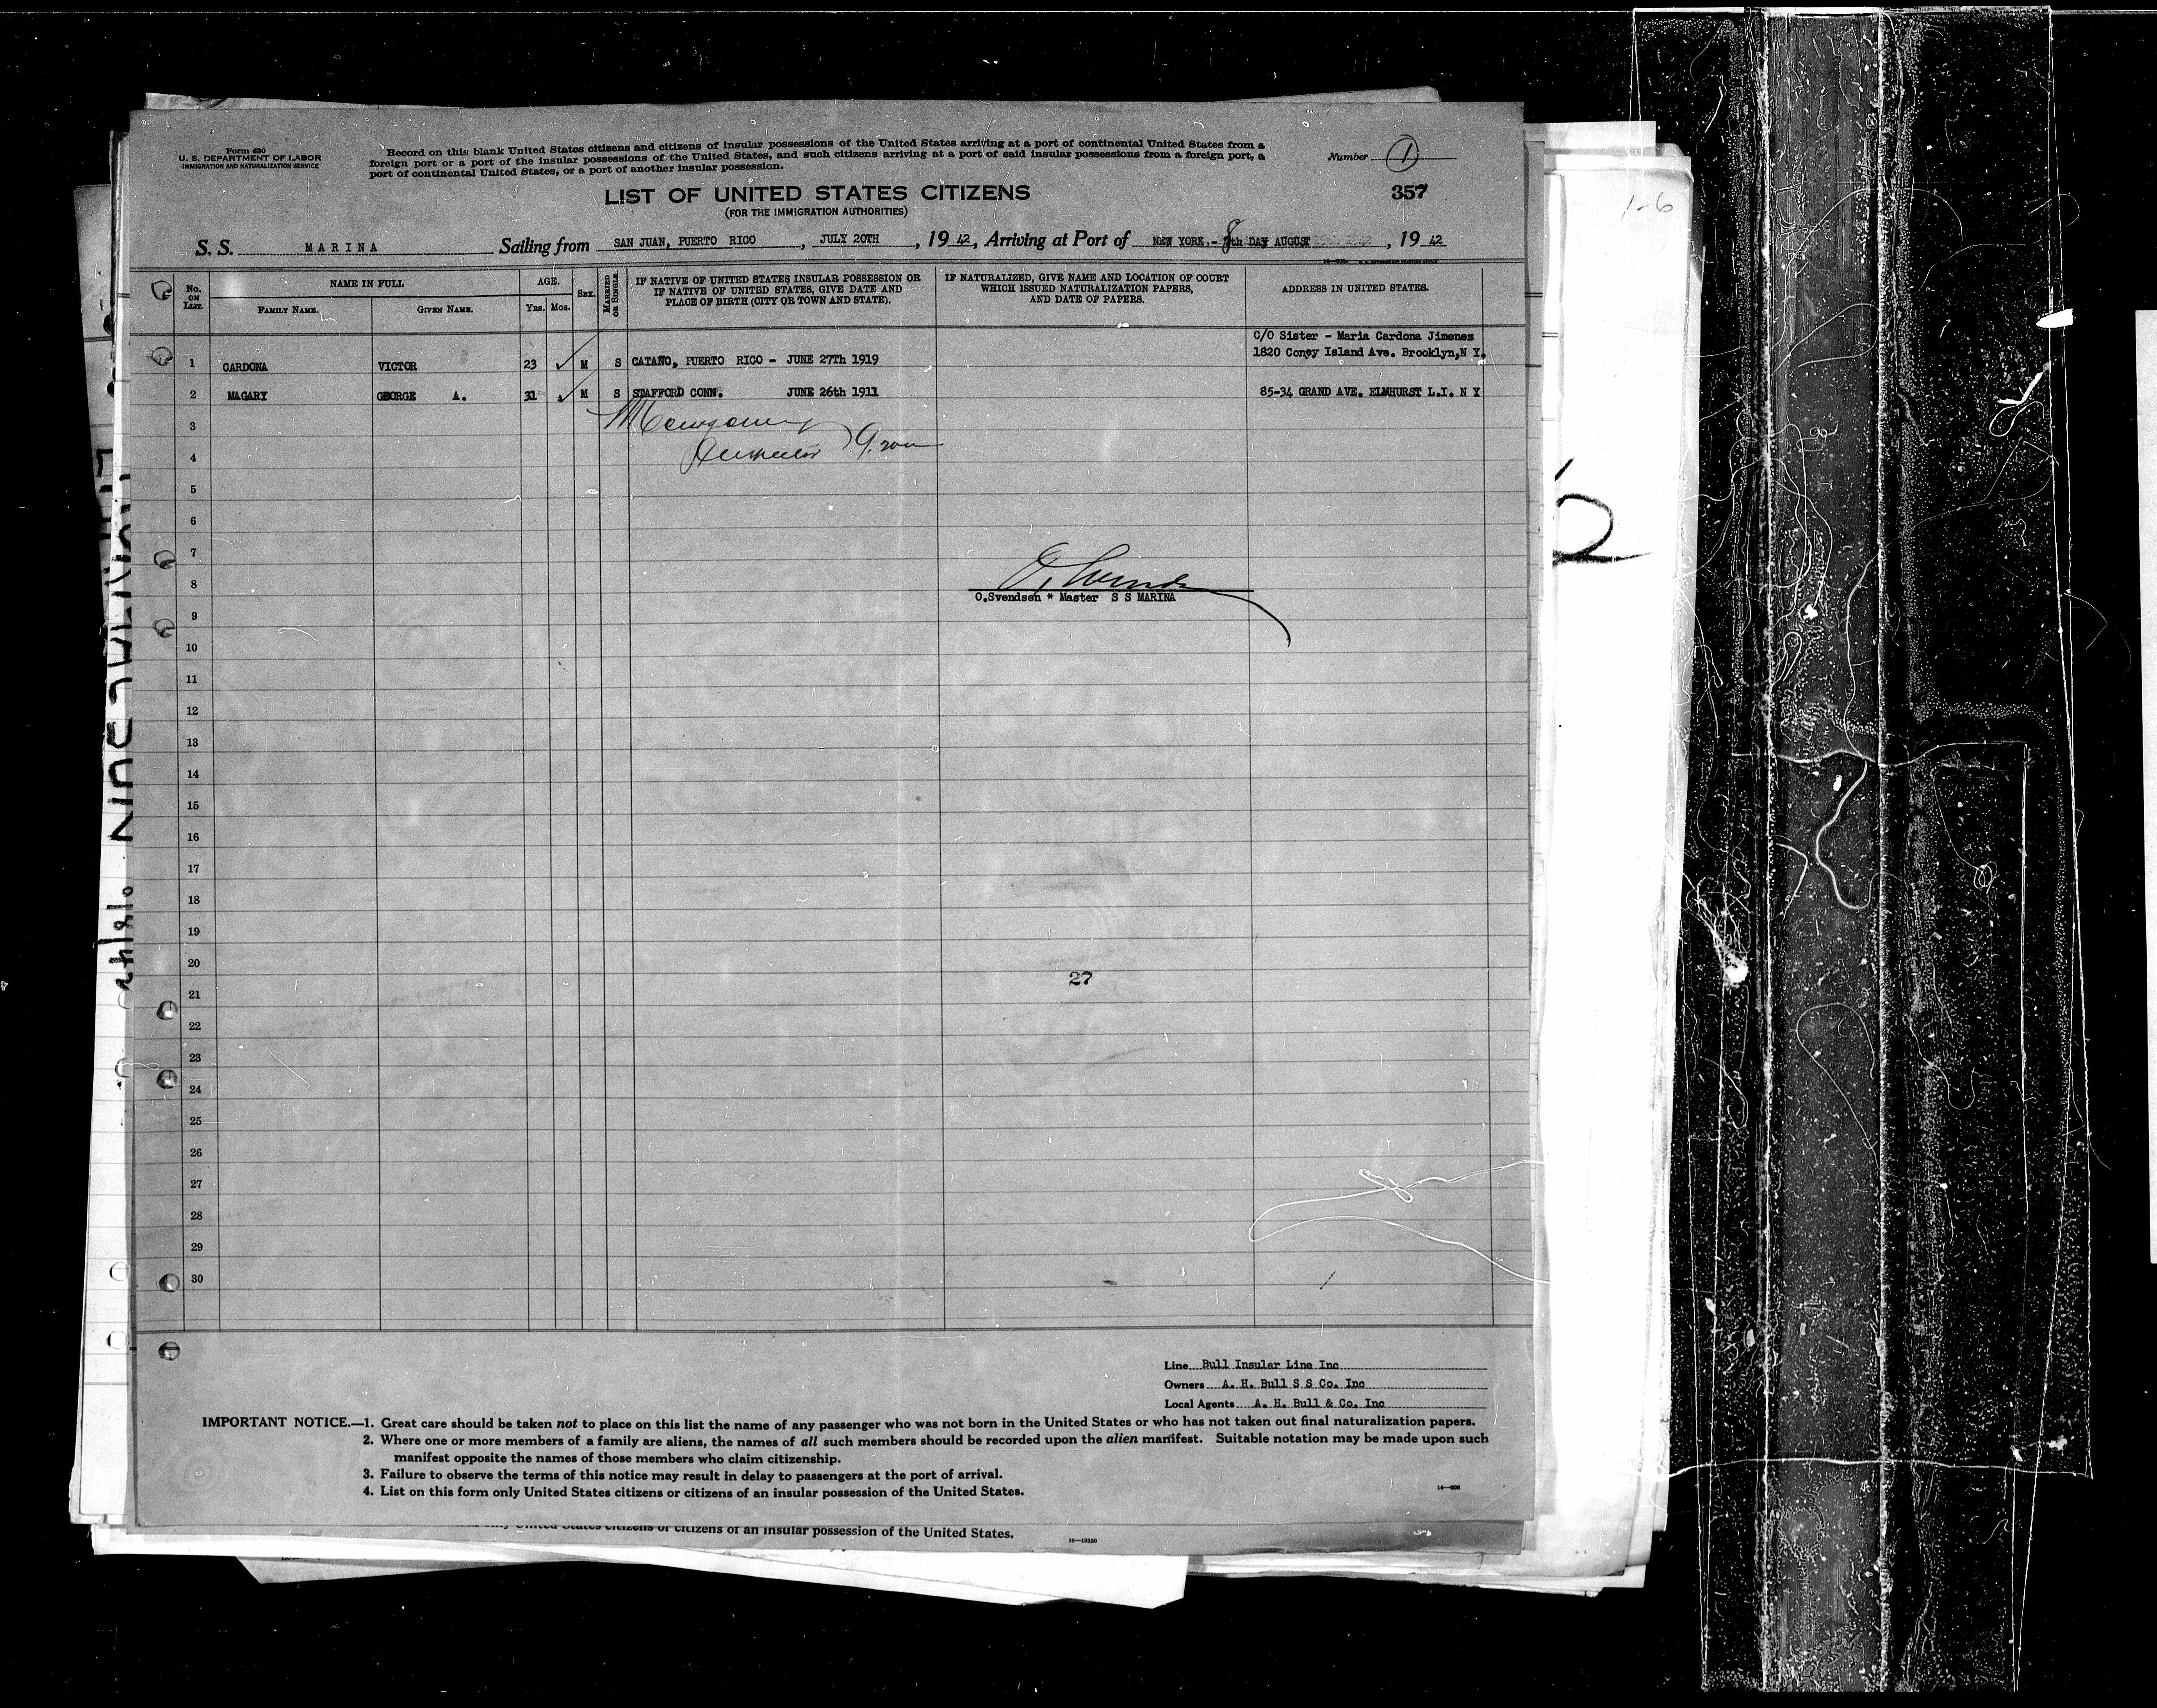 Form 630
U. S. DEPARTMENT OF LABOR
IMMIGRATION AND NATURALIZATION SERVICE
Record on this blank United States citizens and citizens of insular possessions of the United States arriving at a port of continental United States from a
foreign port or a port of the insular possessions of the United States, and such citizens arriving at a port of said insular possessions from a foreign port, a
port of continental United States, or a port of another insular possession.
Number 1
LIST OF UNITED STATES CITIZENS
357
(FOR THE IMMIGRATION AUTHORITIES)
1-6
S. S. MARINA Sailing from SAN JUAN, PUERTO RICO, JULY 20TH, 19 42, Arriving at Port of NEW YORK.- 8th DAY AUGUST, 19 42
No. ON LIST.
NAME IN FULL
FAMILY NAME.
GIVEN NAME.
AGE.
Yrs. Mos.
SEX.
MARRIED OR SINGLE.
IF NATIVE OF UNITED STATES INSULAR POSSESSION OR
IF NATIVE OF UNITED STATES, GIVE DATE AND
PLACE OF BIRTH (CITY OR TOWN AND STATE).
IF NATURALIZED, GIVE NAME AND LOCATION OF COURT
WHICH ISSUED NATURALIZATION PAPERS,
AND DATE OF PAPERS.
ADDRESS IN UNITED STATES.
C/O Sister - Maria Cardona Jimenez
1 CARDONA VICTOR 23 M S CATAÑO, PUERTO RICO - JUNE 27Th 1919 1820 Coney Island Ave. Brooklyn,N Y.
2 MAGARY GEORGE A. 31 M S STAFFORD CONN. JUNE 26th 1911 85-34 GRAND AVE. ELMHURST L.I. N Y
3
4
5
6
7
8
O.Svendsen * Master S S MARINA
9
10
11
12
13
14
15
16
17
18
19
20
27
21
22
23
24
25
26
27
28
29
30
Line Bull Insular Line Inc
Owners A. H. Bull S S Co. Inc
Local Agents A. H. Bull & Co. Inc
IMPORTANT NOTICE.—1. Great care should be taken not to place on this list the name of any passenger who was not born in the United States or who has not taken out final naturalization papers.
2. Where one or more members of a family are aliens, the names of all such members should be recorded upon the alien manifest. Suitable notation may be made upon such
manifest opposite the names of those members who claim citizenship.
3. Failure to observe the terms of this notice may result in delay to passengers at the port of arrival.
4. List on this form only United States citizens or citizens of an insular possession of the United States.
United States citizens or citizens of an insular possession of the United States.